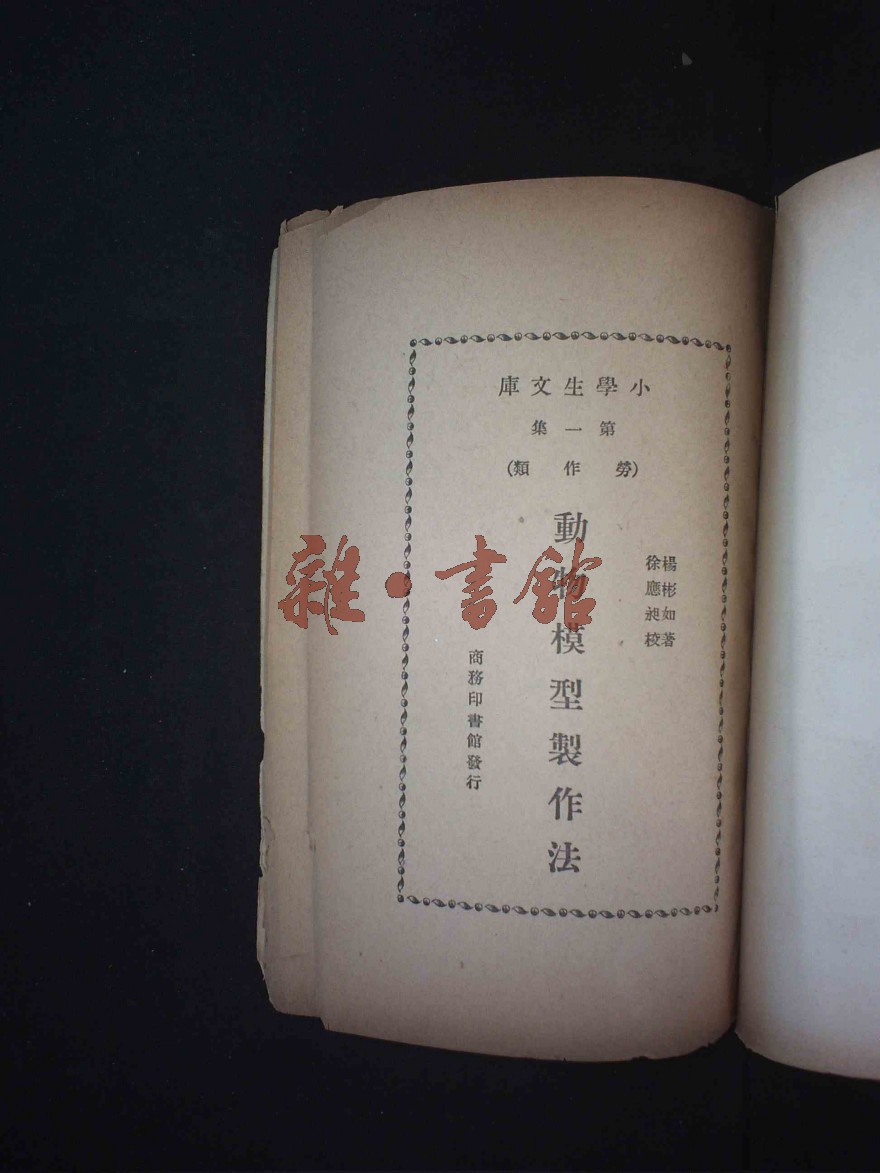 小學生文庫
第一集
(勞作類)
楊彬如著
徐應昶校
動物模型製作法
商務印書館發行
雜·書館